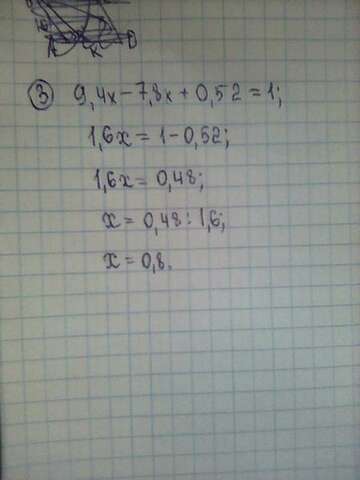 ③ 9,4x - 7,8x + 0,52 = 1;
1,6x = 1 - 0,52;
1,6x = 0,48;
x = 0,48 : 1,6;
x = 0,8.